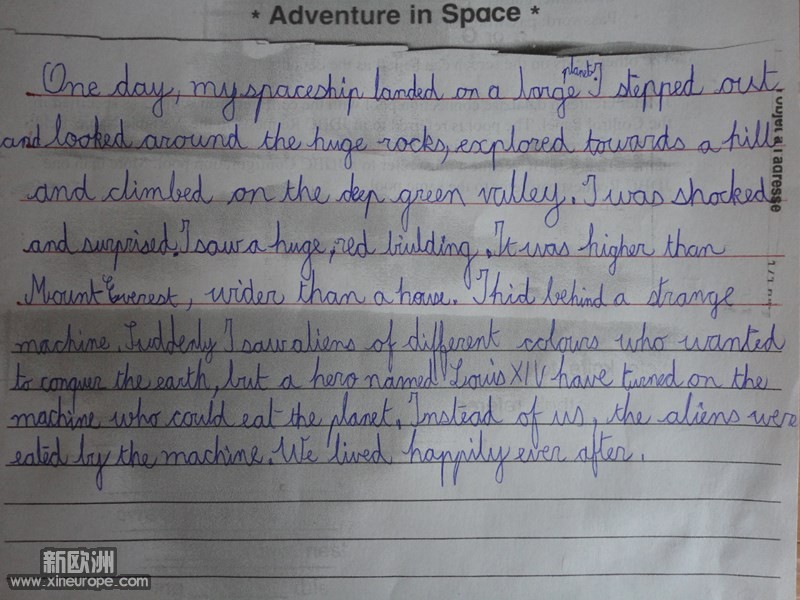 * Adventure in Space *
planet.
One day, my spaceship landed on a large I stepped out
and looked around the huge rocks, explored towards a hill
and climbed on the deep green valley. I was shocked
and surprised. I saw a huge, red biulding. It was higher than
Mount Everest, wider than a house. I hid behind a strange
machine. Suddenly I saw aliens of different colours who wanted
to conquer the earth, but a hero named Louis XIV have turned on the
machine who could eat the planet. Instead of us, the aliens were
eated by the machine. We lived happily ever after.
新欧洲
www.xineurope.com